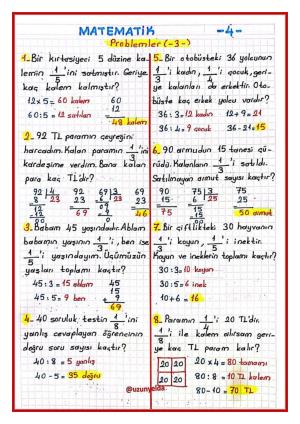 MATEMATİK -4-
Problemler (-3-)
1- Bir kırtasiyeci 5 düzine ka-
lemin 1/5'ini satmıştır. Geriye
kaç kalem kalmıştır?
12x5 = 60 kalem
60:5 = 12 satılan
60
12
-
48 kalem
2- 92 TL paramın çeyreğini
harcadım. Kalan paramın 1/3'ini
kardeşime verdim. Bana kalan
para kaç TL'dir?
92 4
8 23
12
12
00
92
23
-
69
69 3
6 23
09
9
0
69
23
-
46
3- Babam 45 yaşındadır. Ablam
babamın yaşının 1/3'i, ben ise
1/5'i yaşındayım. Üçümüzün
yaşları toplamı kaçtır?
45:3 = 15 ablam
45:5 = 9 ben
45
15
+ 9
69
4- 40 soruluk testin 1/8'ini
yanlış cevaplayan öğrencinin
doğru soru sayısı kaçtır?
40:8 = 5 yanlış
40-5 = 35 doğru
5- Bir otobüsteki 36 yolcunun
1/3'i kadın, 1/4'i çocuk, geri-
ye kalanları da erkektir. Oto-
büste kaç erkek yolcu vardır?
36:3 = 12 kadın 12+9=21
36:4 = 9 çocuk 36-21=15
6- 90 armudun 15 tanesi çü-
rüdü. Kalanların 1/3'i satıldı.
Satılmayan armut sayısı kaçtır?
90
15
-
75
75 3
6 25
15
15
00
75
25
-
50 armut
7- Bir çiftlikteki 30 hayvanın
1/3'i koyun, 1/5'i inektir.
Koyun ve ineklerin toplamı kaçtır?
30:3 = 10 koyun
30:5 = 6 inek
10+6 = 16
8- Paramın 1/4'i 20 TL'dir.
1/8'i ile kalem alırsam geri-
ye kaç TL param kalır?
20 20
20 20
20x4 = 80 tamamı
80:8 = 10 TL kalem
80-10 = 70 TL